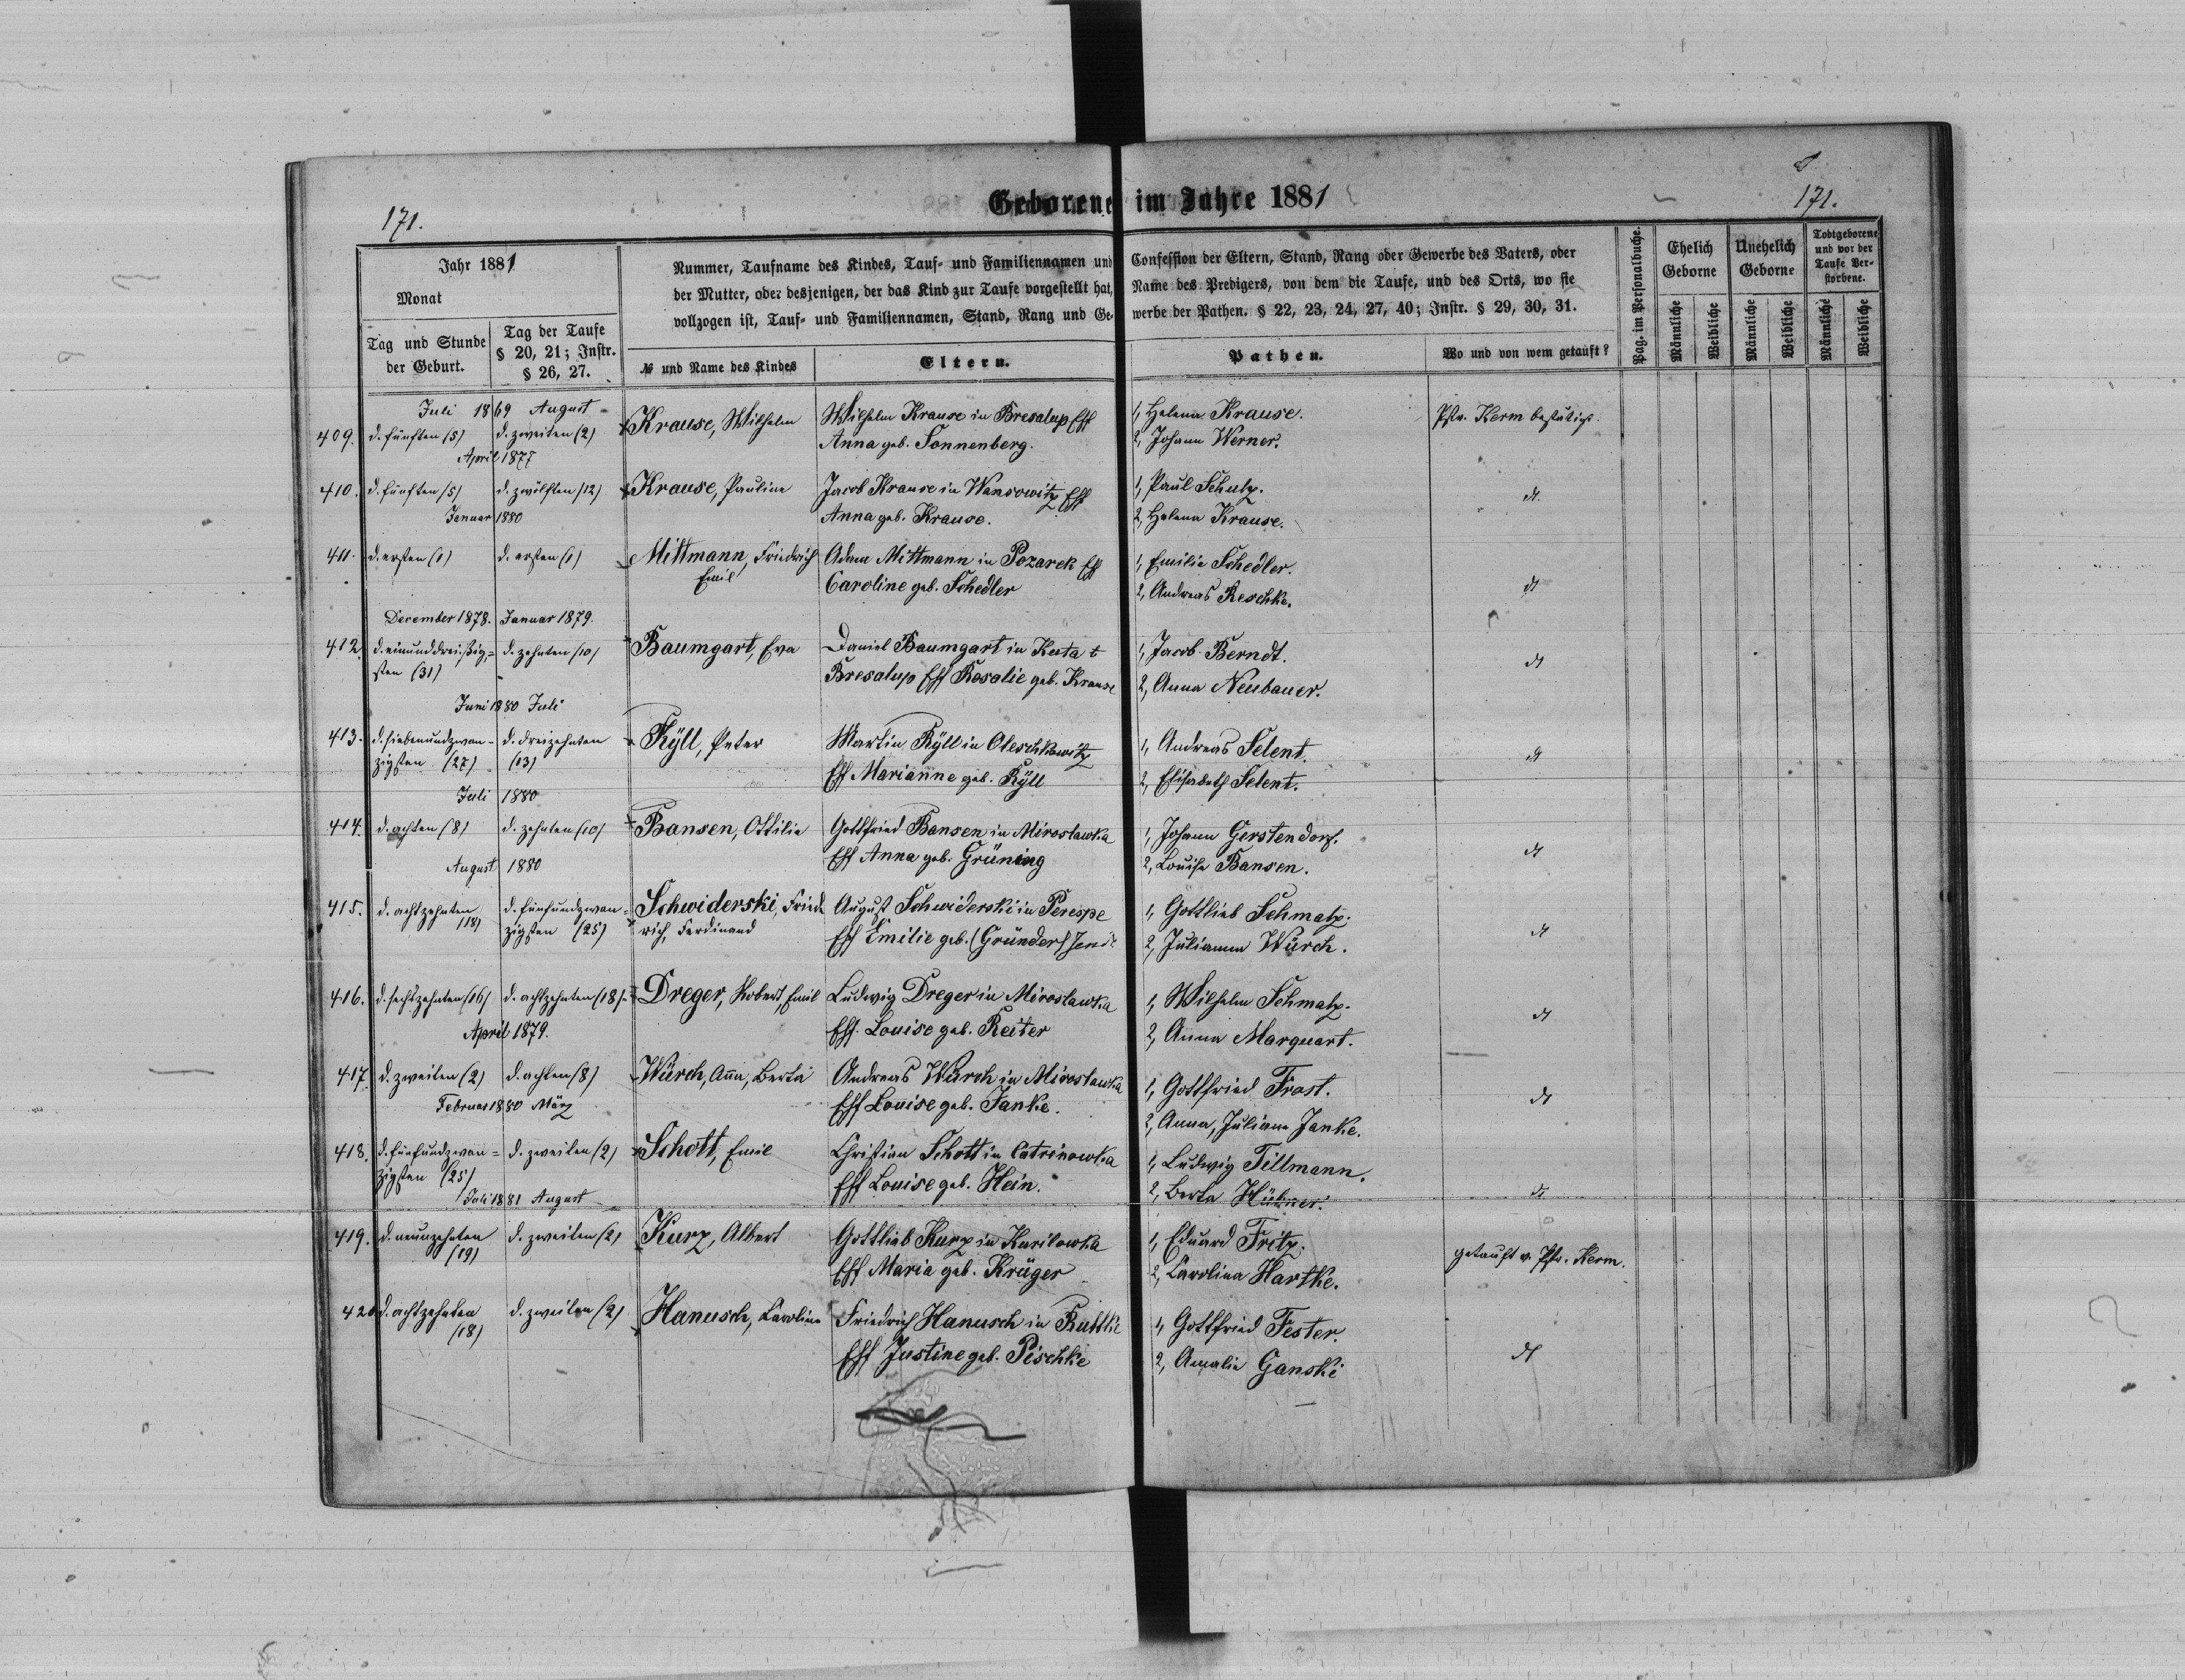 171.
Geborene im Jahre 1881
171.
Jahr 1881
Monat
Tag und Stunde
der Geburt.
Tag der Taufe
§ 20, 21; Instr.
§ 26, 27.
Nummer, Taufname des Kindes, Tauf- und Familiennamen und
der Mutter, oder desjenigen, der das Kind zur Taufe vorgestellt hat,
vollzogen ist, Tauf- und Familiennamen, Stand, Rang und Ge-
№ und Name des Kindes
Eltern.
Confession der Eltern, Stand, Rang oder Gewerbe des Vaters, oder
Name des Predigers, von dem die Taufe, und des Orts, wo sie
werbe der Pathen. § 22, 23, 24, 27, 40; Instr. § 29, 30, 31.
Pathen.
Wo und von wem getauft?
Pag. im Personalbuche.
Ehelich
Geborne
Unehelich
Geborne
Todtgeborene
und vor der
Taufe Ver-
storbene.
Männliche
Weibliche
Männliche
Weibliche
Männliche
Weibliche
Juli 1869 August
409. d. fünften (5) d. zweiten (2) Krause, Wilhelm
Wilhelm Krause in Bresalup Eff
Anna geb. Sonnenberg.
1, Helena Krause.
2, Johann Werner.
Pstr. Kerm bestätigt.
April 1877
410. d. fünften (5) d. zwölften (12) Krause, Pauline
Jacob Krause in Wansowitz Eff
Anna geb. Krause.
1, Paul Schulz.
2, Helena Krause.
dt
Januar 1880
411. d. ersten (1) d. ersten (1) Mittmann, Friedrich
Emil
Adam Mittmann in Pozarek Eff
Caroline geb. Schedler
1, Emilie Schedler.
2, Andreas Reschke.
dt
December 1878. Januar 1879.
412. d. einunddreißig= d. zehnten (10) Baumgart, Eva
sten (31)
Daniel Baumgart in Kuta t
Bresalup Eff Rosalie geb. Krause
1, Jacob Berndt.
2, Anna Neubauer.
dt
Juni 1880 Juli
413. d. siebenundzwan- d. dreizehnten Kÿll, Peter
zigsten (27) (13)
Martin Kÿll in Oleschkowitz
Eff Marianne geb. Kÿll
1, Andreas Selent.
2, Elisabeth Selent.
dt
Juli 1880
414. d. achten (8) d. zehnten (10) Bansen, Ottilie
Gottfried Bansen in Miroslawka
Eff Anna geb. Grüning
1, Johann Gerstendorf.
2, Louise Bansen.
dt
August 1880
415. d. achtzehnten d. fünfundzwan= Schwiderski, Fried
(18) zigsten (25) rich, Ferdinand
August Schwiderski in Perespe
Eff Emilie geb. (Gründer)
1, Gottlieb Schmalz.
2, Julianna Würch.
dt
416. d. sechzehnten (16) d. achtzehnten (18) Dreger, Robert, Emil
Ludwig Dreger in Miroslawka
Eff. Louise geb. Reiter
1, Wilhelm Schmalz.
2, Anna Marquart.
dt
April 1879.
417. d. zweiten (2) d. achten (8) Würch, Anna, Berta
Andreas Würch in Miroslawka
Eff Louise geb. Janke.
1, Gottfried Frost.
2, Anna, Juliane Janke.
dt
Februar 1880 März
418. d. fünfundzwan= d. zweiten (2) Schott, Emil
zigsten (25)
Christian Schott in Catrinowka
Eff Louise geb. Hein.
1, Ludwig Tillmann.
2, Berta Hübner.
dt
Juli 1881 August
419. d. neunzehnten d. zweiten (2) Kurz, Albert
(19)
Gottlieb Kurz in Kurilowka
Eff Maria geb. Krüger
1, Eduard Fritz.
2, Carolina Hartke.
getauft v. Pstr. Kerm.
420. d. achtzehnten d. zweiten (2) Hanusch, Caroline
(18)
Friedrich Hanusch in
Eff Justine geb. Pischke
1, Gottfried Fester.
2, Amalie Ganski
dt